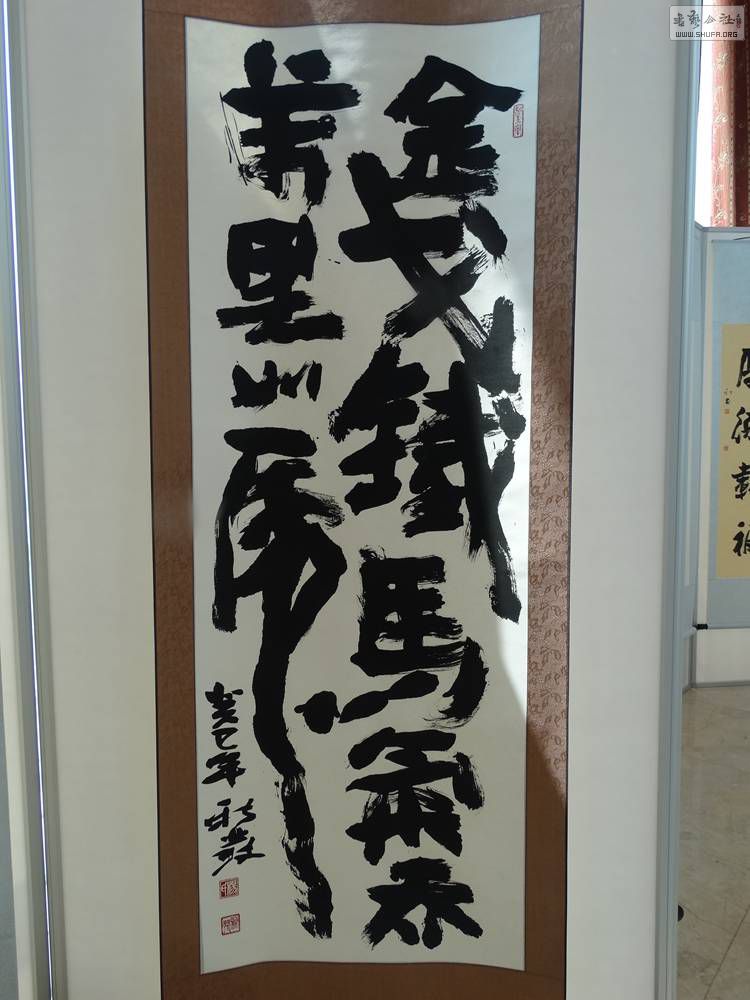 金戈鐵馬氣吞
萬里如虎
癸巳年
WWW.SHUFA.ORG